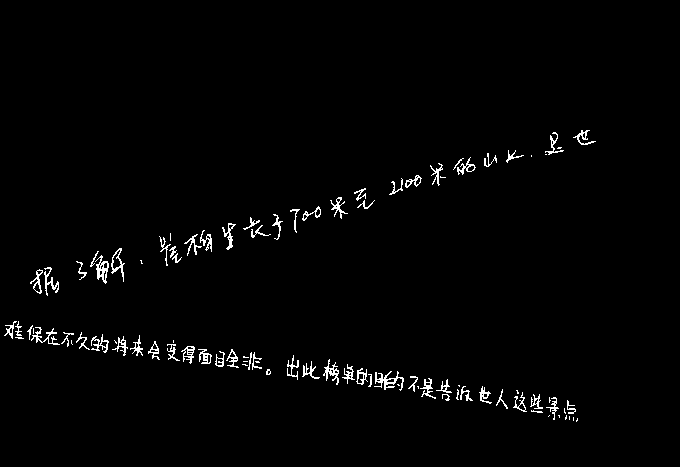 据了解,崖柏生长于700米至2100米的山区,是世
难保在不久的将来会变得面目全非。出此榜单的目的不是告诉世人这些景点